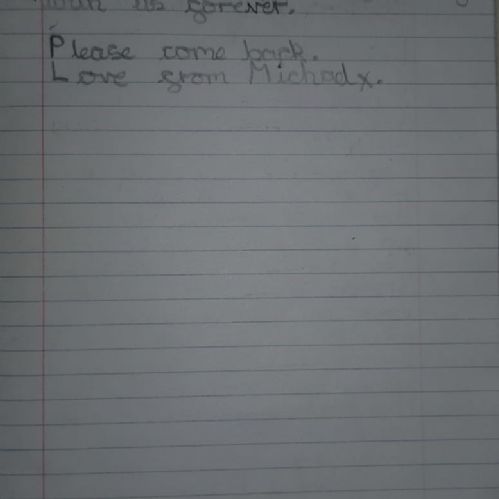 us forever.
Please come back.
Love from Michael x.